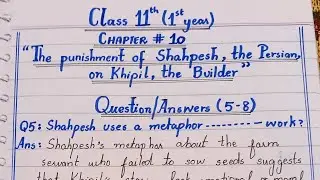 Class 11th (1st year)
CHAPTER # 10
"The punishment of Shahpesh, the Persian,
on Khipil, the Builder"
Question/Answers (5-8)
Q5: Shahpesh uses a metaphor --------- work?
Ans: Shahpesh's metaphor about the farm
servant who failed to sow seeds suggests
that Khipil's